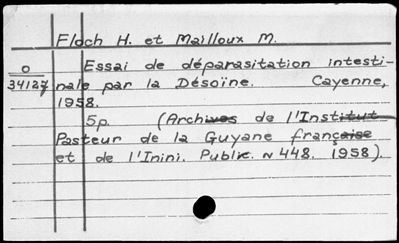 Floch H. et Mailloux M.
O
34127
Essai de déparasitation intesti-
nale par la Désoïne. Cayenne,
1958.
5p. (Archives de l'Institut
Pasteur de la Guyane française
et de l'Inini. Public. N 448. 1958).